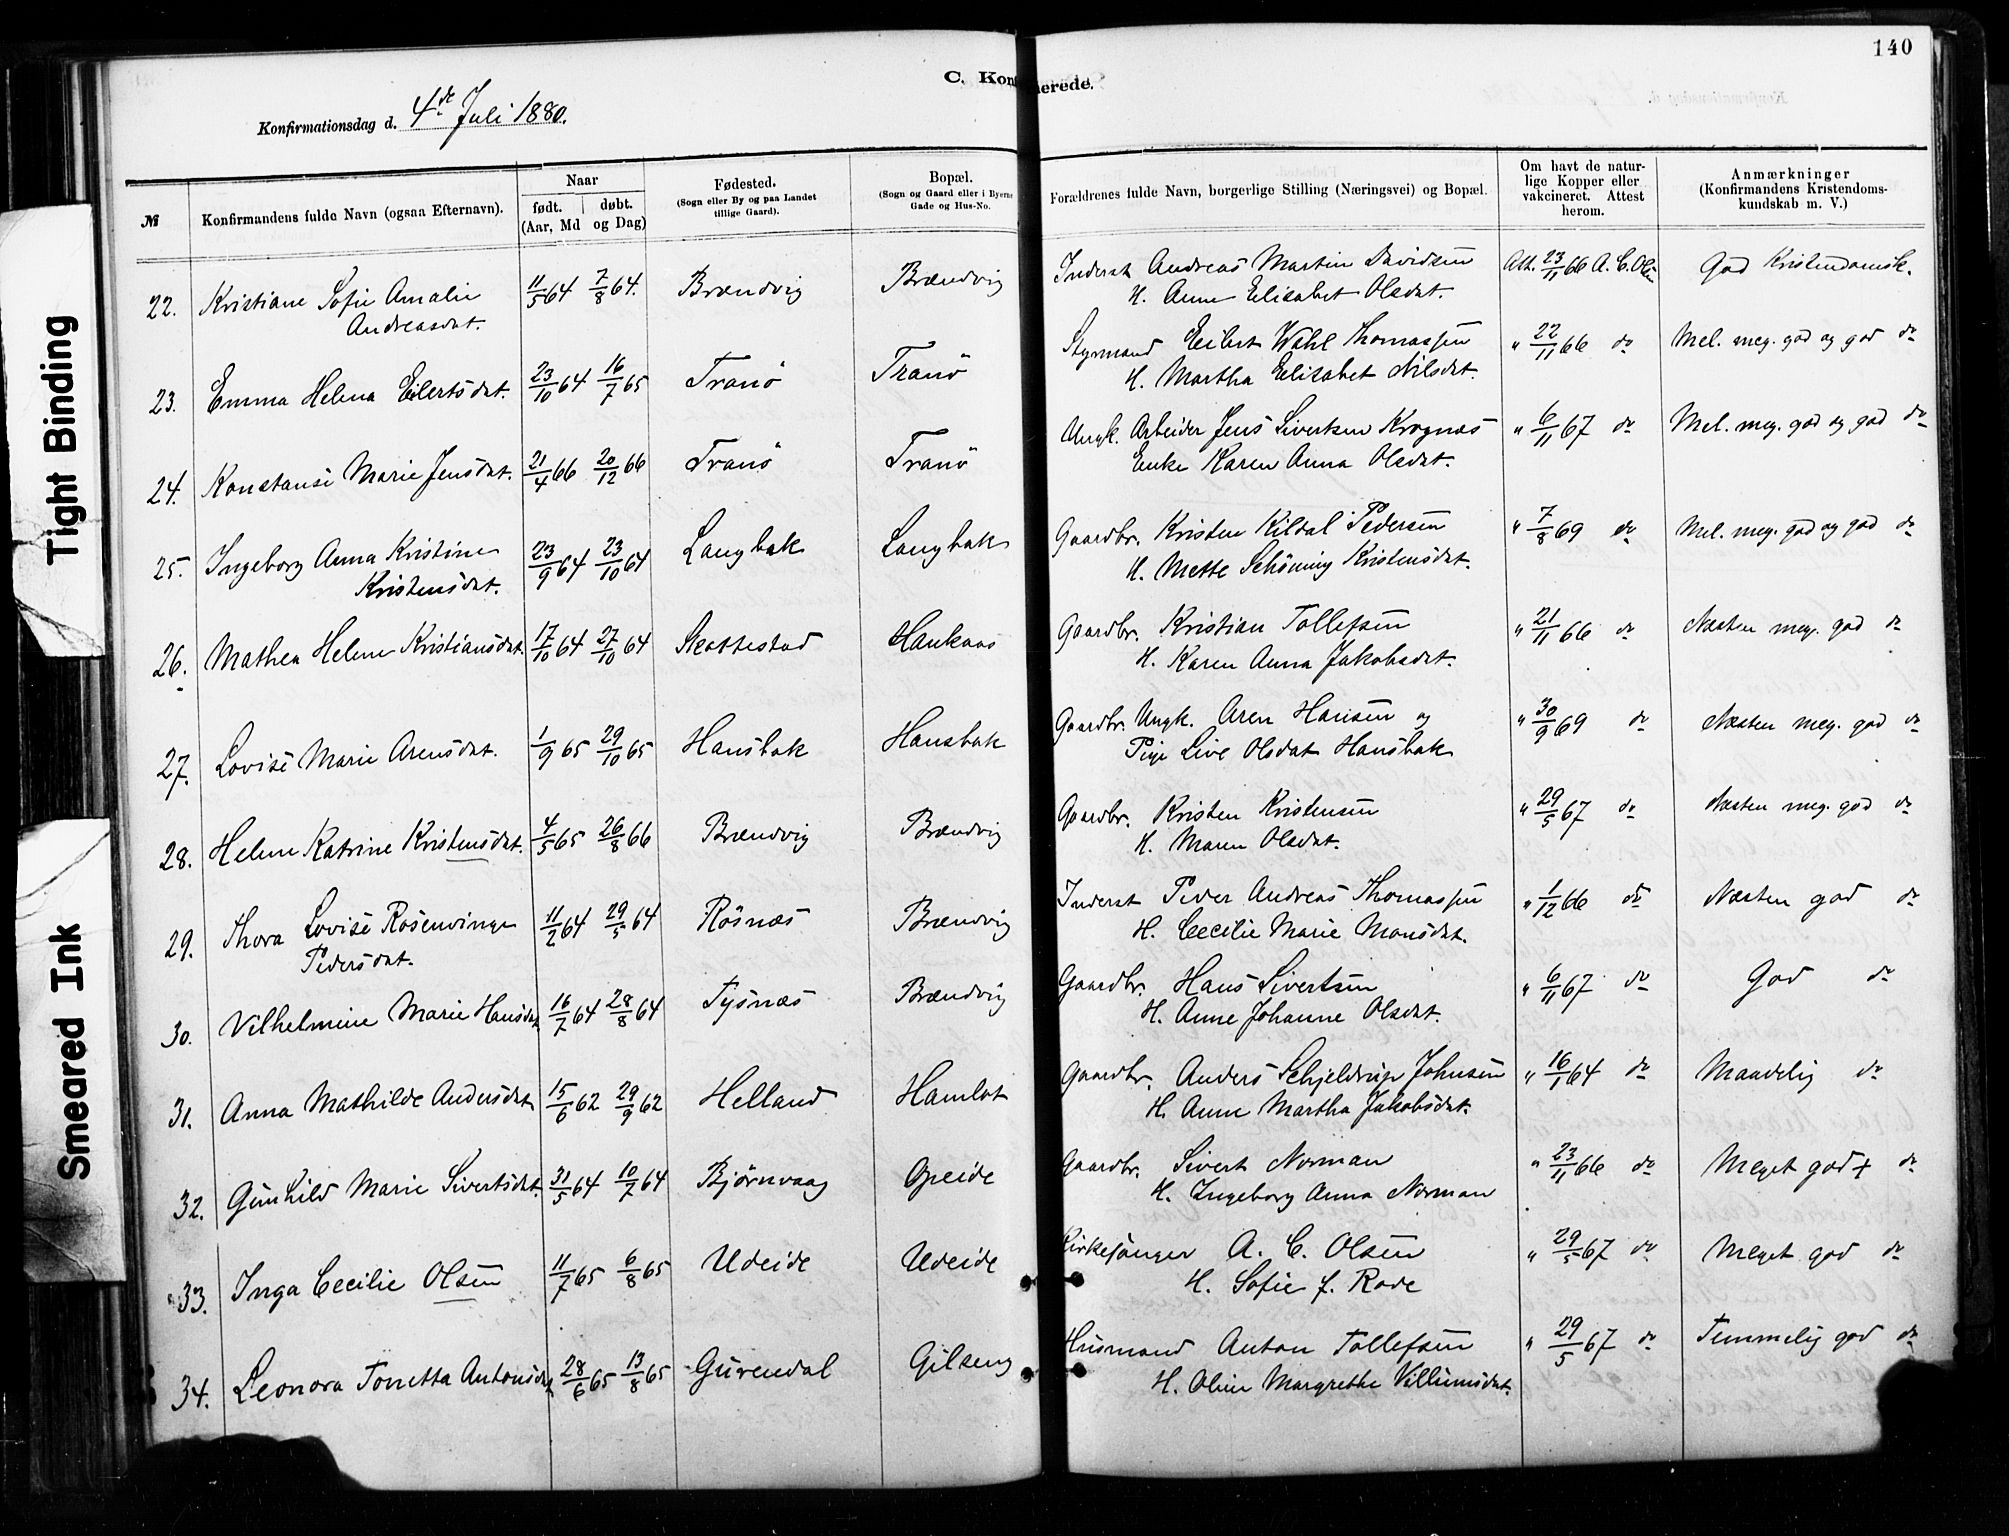 140
C. Konf
merede.
Konfirmationsdag d. 4de Juli 1880.
№
Konfirmandens fulde Navn (ogsaa Efternavn).
Naar
født. | døbt.
(Aar, Md og Dag)
Fødested.
(Sogn eller By og paa Landet
tillige Gaard).
Bopæl.
(Sogn og Gaard eller i Byerne
Gade og Hus-No.
Forældrenes fulde Navn, borgerlige Stilling (Næringsvei) og Bopæl.
Om havt de natur-
lige Kopper eller
vakcineret. Attest
herom.
Anmærkninger
(Konfirmandens Kristendoms-
kundskab m. V.)
22. Kristiane Sofie Amalie 11/5 64 7/8 64. Brændvig Brændvig Inderst Andreas Martin Davidsen Att. 23/11 66 A. C. Olsen God Kristendomsk.
Andreasdat. H. Anne Elisabet Olsdat.
23. Emma Helena Eilertsdat. 23/10 64 16/7 65 Tranö Tranö Styrmand Eilert Wahl Thomassen " 22/11 66 do Mel. meg. god og god do
H. Martha Elisabet Nilsdat.
24. Konstanse Marie Jensdat. 21/4 66 20/12 66 Tranö Tranö Ungk. Arbeider Jens Sivertsen Krognæs " 6/11 67 do Mel. meg. god og god do
Enke Karen Anna Olsdat.
25. Ingeborg Anna Kristine 23/9 64 23/10 64 Langbak Langbak Gaardbr. Kristen Kildal Pedersen " 7/8 69 do Mel. meg. god og god do
Kristensdat. H. Mette Schöning Kristensdat.
26. Mathea Helene Kristiansdat. 17/10 64 27/10 64 Skottestad Haukaas Gaardbr. Kristian Tollefsen " 21/11 66 do Næsten meg. god do
H. Karen Anna Jakobsdat.
27. Lovise Marie Arensdat. 1/9 65 29/10 65 Hansbak Hansbak Gaardbr. Ungk. Aren Hansen og " 30/9 69 do Næsten meg. god do
Pige Live Olsdat Hansbak
28. Helene Katrine Kristensdat. 4/5 65 26/8 66 Brændvig Brændvig Gaardbr. Kristen Kristensen " 29/5 67 do Næsten meg. god do
H. Maren Olsdat.
29. Thora Lovise Rosenvinge 11/2 64 29/5 64 Rösnæs Brændvig Inderst Peder Andreas Thomassen " 1/12 66 do Næsten god do
Pedersdat. H. Cecilie Marie Monsdat.
30. Vilhelmine Marie Hansdat 16/7 64 28/8 64 Tysnæs Brændvig Gaardbr. Hans Sivertsen " 6/11 67 do God do
H. Anne Johanne Olsdat.
31. Anna Mathilde Andersdat 15/6 62 29/9 62 Helland Hamlot Gaardbr. Anders Schjeldrup Johnsen " 16/1 64 do Maadelig do
H. Anne Martha Jakobsdat.
32. Gunhild Marie Sivertsdat. 31/5 64 10/7 64 Bjørnvaag Opeide Gaardbr. Sivert Norman " 23/11 66 do Meget god + do
H. Ingeborg Anna Norman
33. Inga Cecilie Olsen 11/7 65 6/8 65 Udeide Udeide Kirkesanger A. C. Olsen " 29/5 67 do Meget god do
H. Sofie f. Rode
34. Leonora Tonetta Antonsdat 28/6 65 13/8 65 Gurendal Gilseng Husmand Anton Tollefsen " 29/5 67 do Temmelig god do
H. Oline Margrethe Villumsdat.
Tight Binding
Smeared Ink